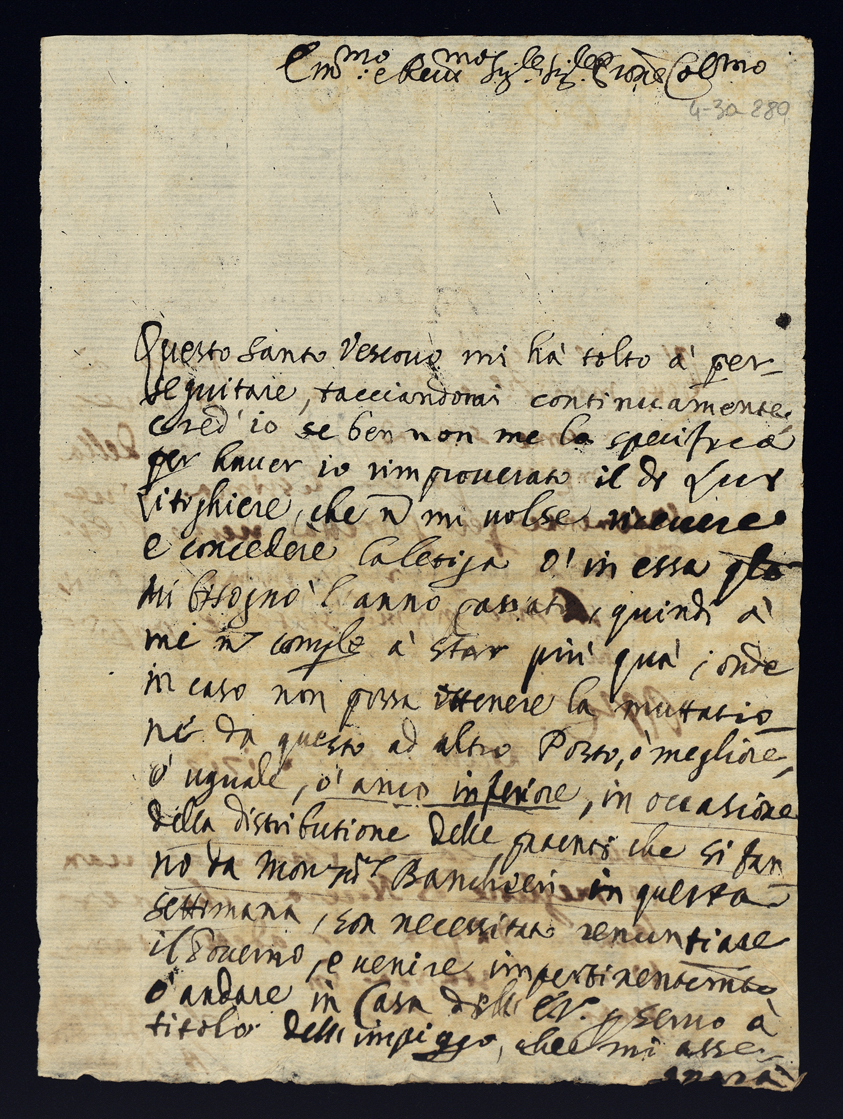 Em.mo e Rev.mo Sig.re Sig.re e Prone Col.mo
4-30 280
Questo Santo Vescovo mi hà tolto à per-
seguitare, tacciandomi continuamente,
cred' io se ben non me la specifica
per haver io rimproverato il
che ñ mi volse ricevere
e concedere ò in essa
mi bisognò l'anno passato, quindi à
me ñ comple à star più quà; onde
in caso non possa ottenere la mutatio-
ne da questo ad altro Posto, ò megliore,
ò uguale, ò anco inferiore, in occasione
della distributione delle patenti che si fan
no da Mons.re Banchieri in questa
settimana, son necessitato renuntiare
il Governo, e venire impertinentemte
ò andare in Casa dell' EV. p servo à
titolo dell' impiego, che mi asse-
gnarà